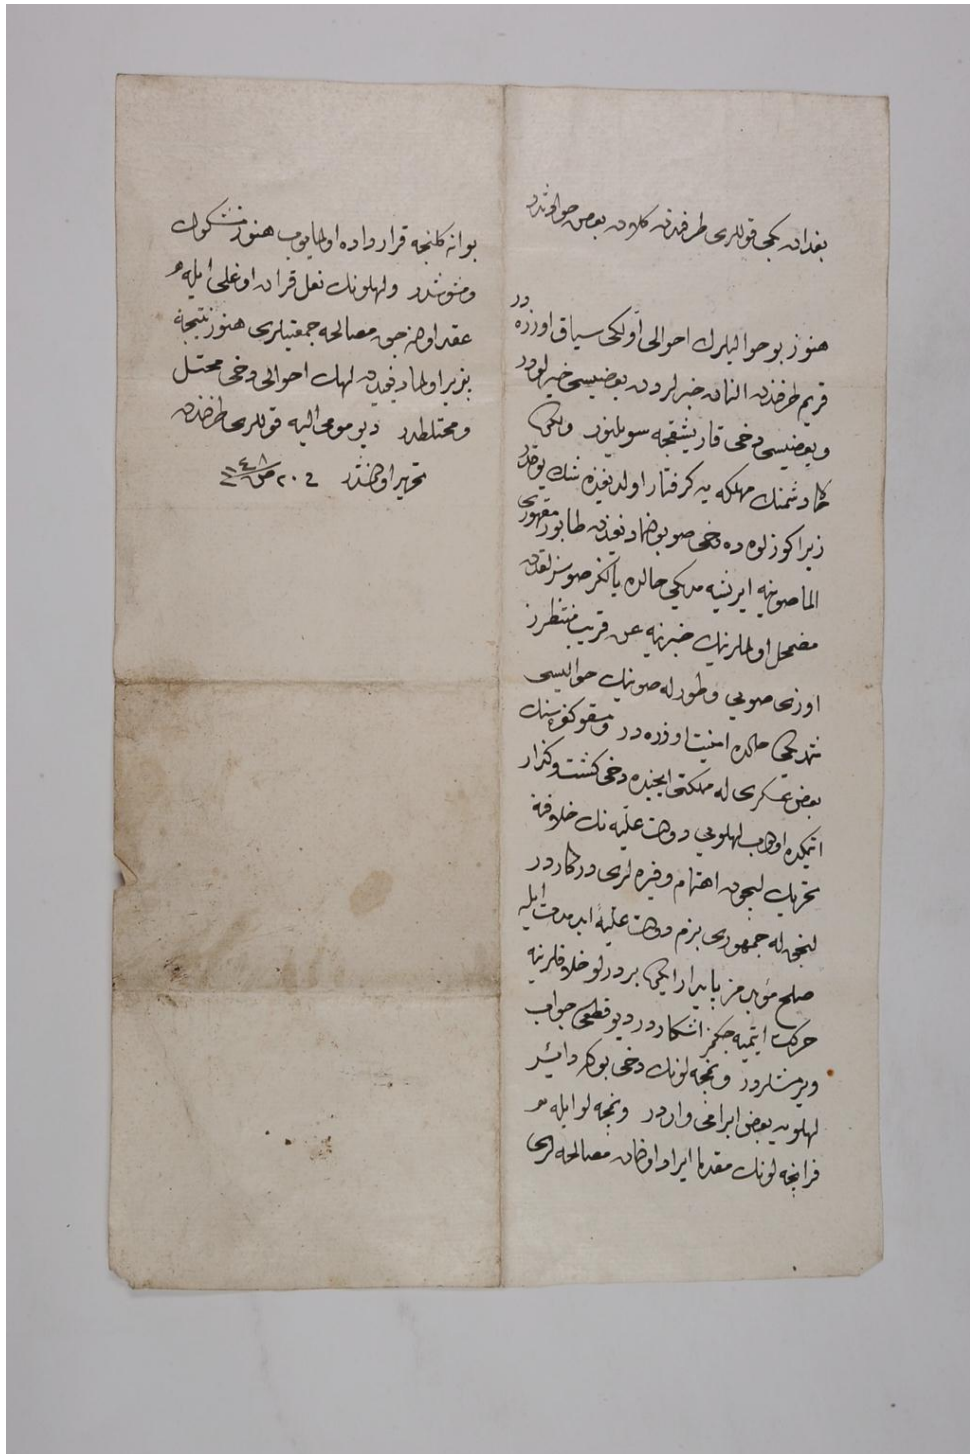 بغدان بكی قوللری طرفندن كلان بعض حوادثدر
هنوز بو حواليلرك احوالی اولكی سياق اوزره در
قريم طرفندن النان خبرلردن بعضيسی خير لودر
و بعضيسی دخی قاريشقجه سويلنور ولكن
دشمنك مهلكه يه كرفتار اولديغنده شك يوقدر
زيرا كوزلوه ده دخی صو بولنمديغندن طابور مقهوری
الما صوينه ايرشيه مديكی حالده يالكز صوسزلقدن
مضمحل اولملرينك خبرينه عن قريب منتظرز
اوزی صويی و طورله صوينك حواليسی
شمديكی حالده امنيت اوزره در و مسقو كفره سنك
بعض عسكری له مملكتی ايچنده دخی كشت و كذار
ايتمكده اولوب لهلويی دولت عليه نك خلافنه
تحريك ايچون اهتمام وفيره لری دركاردر
لكن له جمهوری بزم دولت عليه ابد مدت ايله
صلح مؤبدمز پايدار ايكن بر درلو خلافلرينه
حركت ايتميه جكمز اشكاردر ديو قطعی جواب
ويرمشلردر و نمچه لونك دخی بوكا دائر
لهلويه بعض ابرامی واردر و نمچه لو ايله
فرانچه لونك مقدما ايراد اولنان مصالحه لری
بو انه كلنجه قرارداده اولمايوب هنوز مشكوك
و مشوشدر و لهلونك نعل قران اوغلی ايله
عقد اولنه جق مصالحه جمعيتلری هنوز نتيجه
پذير اولمديغندن لهك احوالی دخی مختل
و مختلطدر ديو مومی اليه قوللری طرفندن
تحرير اولنمشدر فی ٢٠ ص ١١٤٨